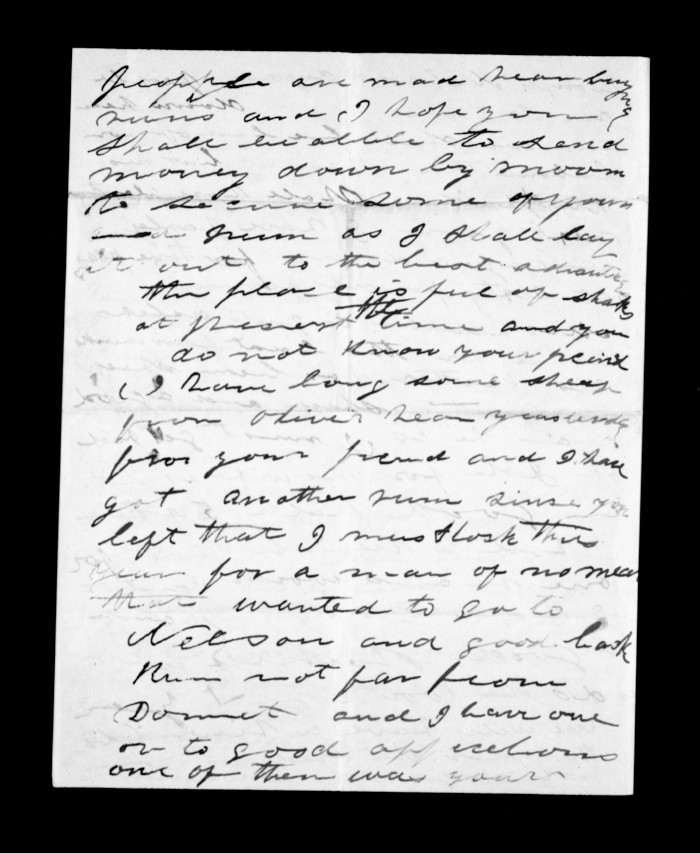 people are mad hear buying
runs and I hope you
shall be allble to send
money down by moom
to secure some of yours
rum as I shall lay
it out to the best
the place is full of sharks
at present the time and you
do not know your freind
I have bong some sheep
from Oliver hear yeasterdy
for your freind and I have
got another rum sinse you
left that I must look this
year for a man of no mean
that wanted to go to
Nelson and good back
Rum not far from
Domet and I have one
or to good
one of them was your